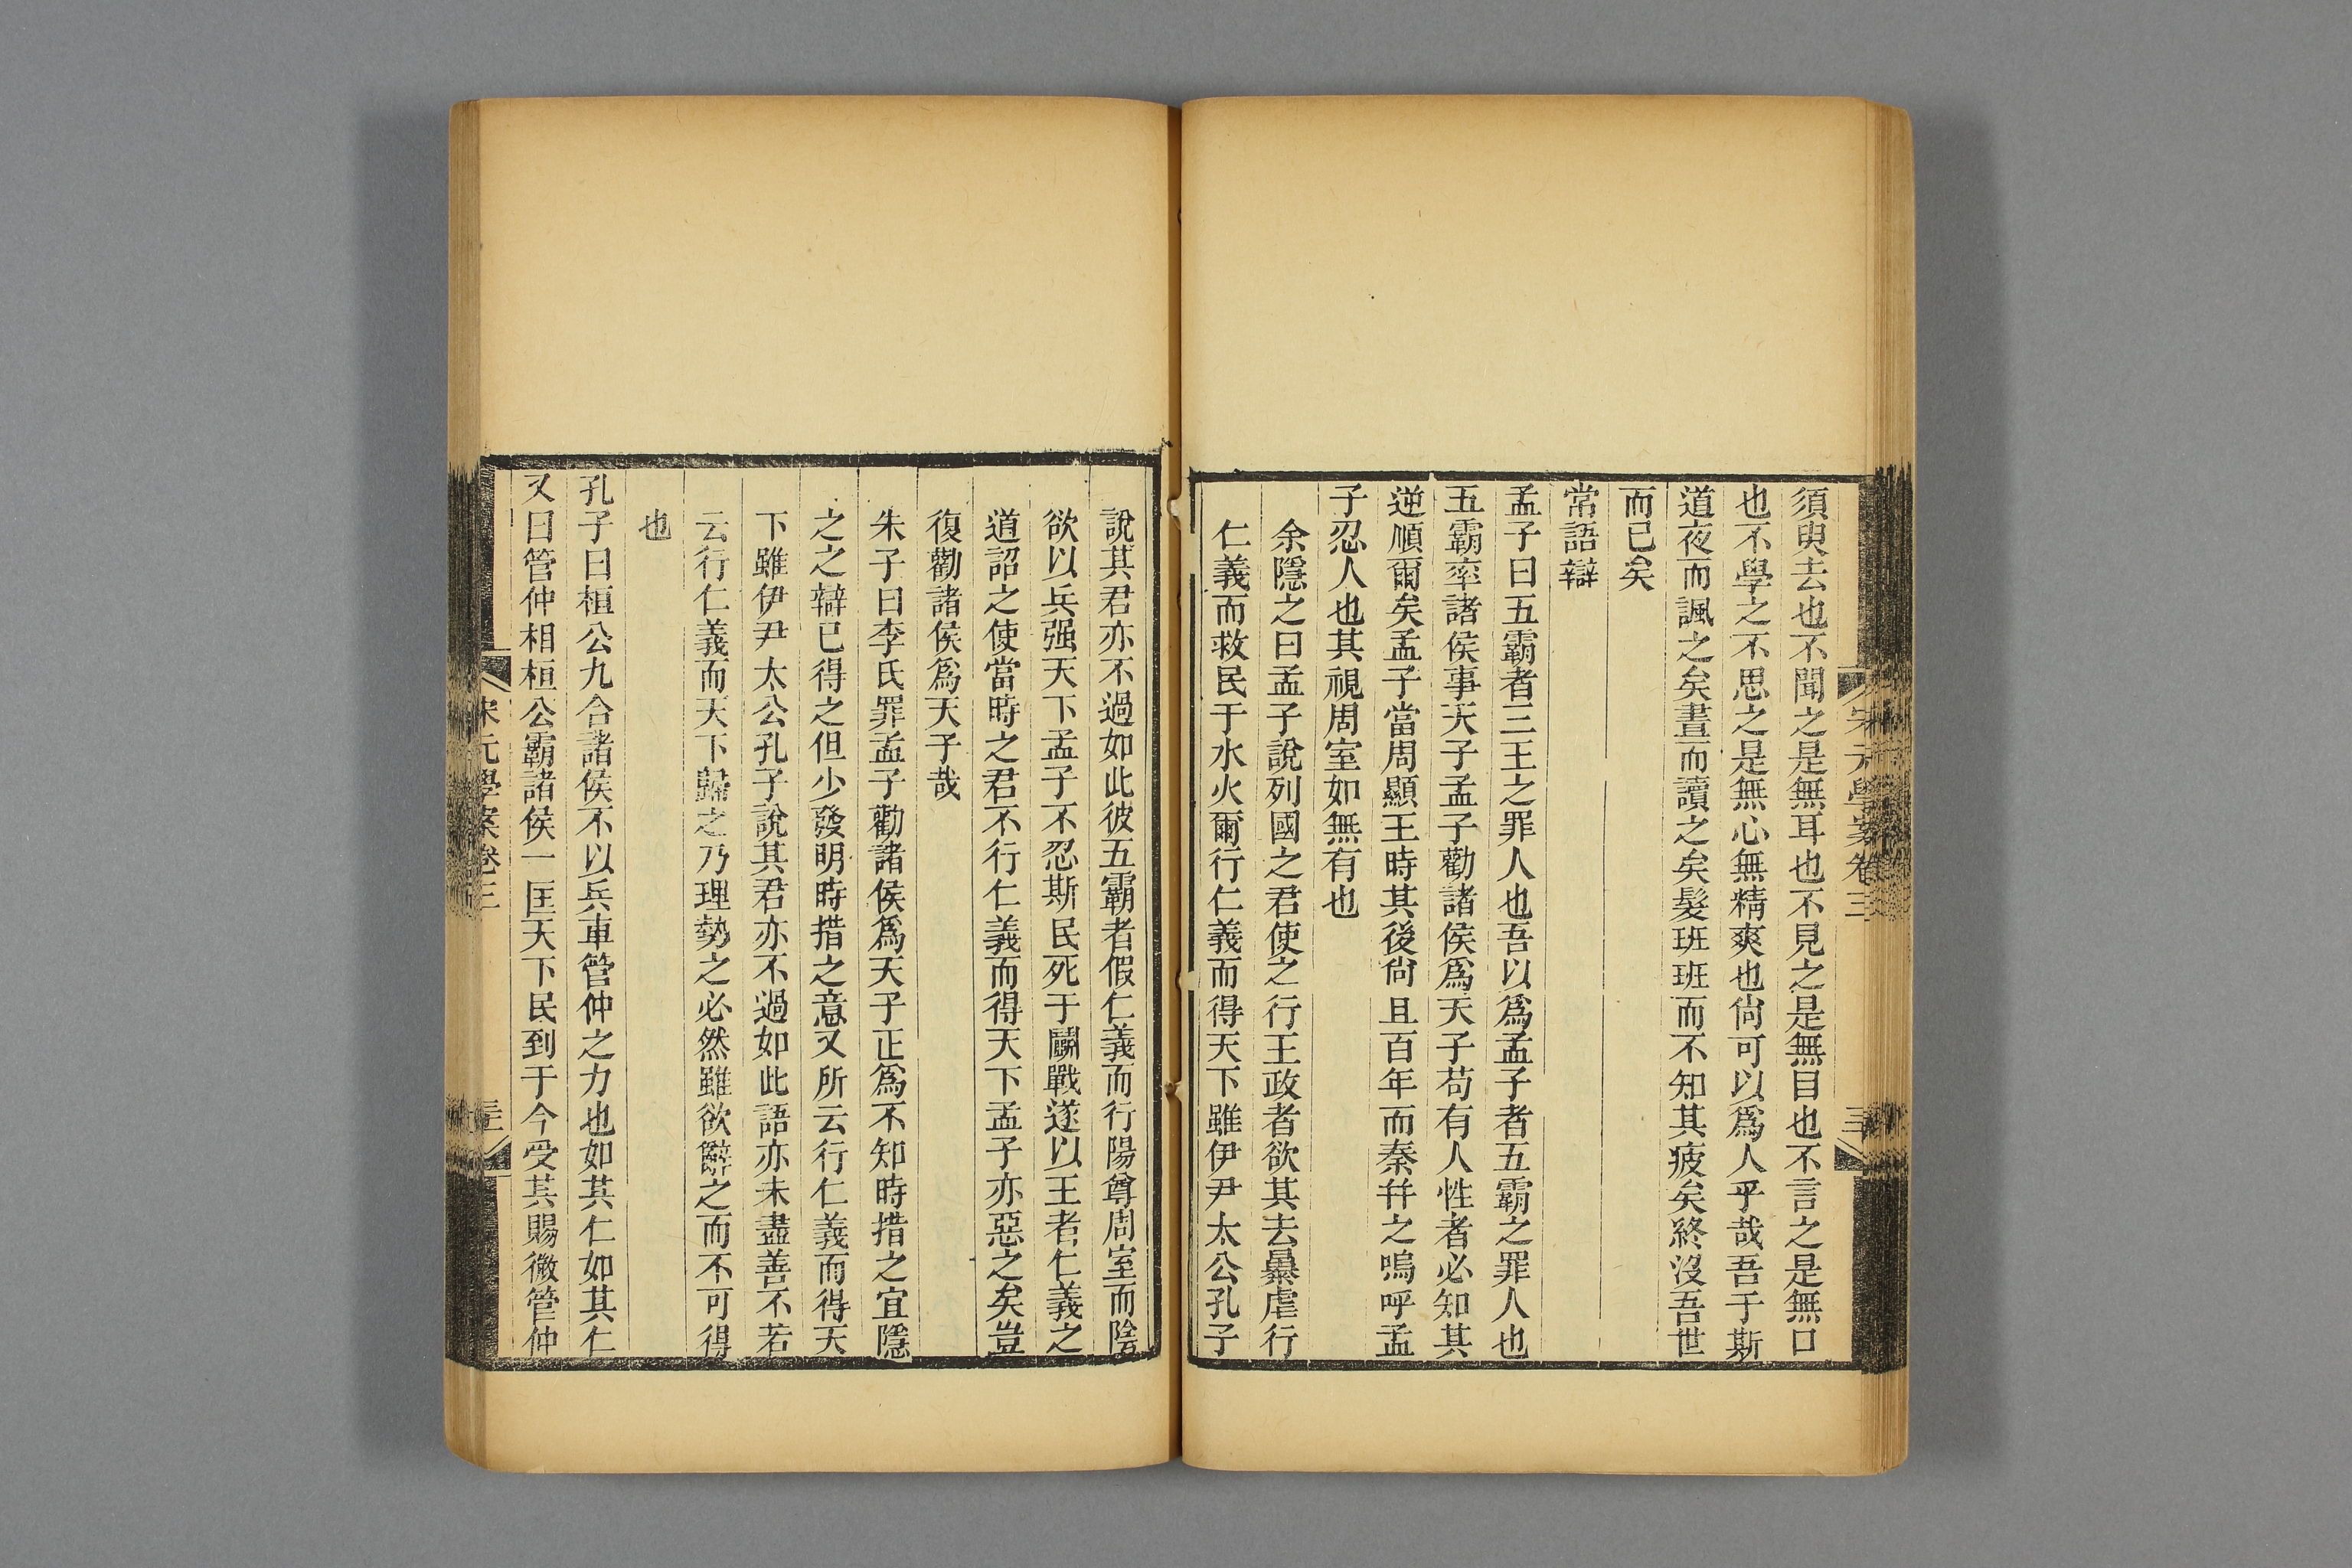 須臾去也不聞之是無耳也不見之是無目也不言之是無口
也不學之不思之是無心無精爽也尙可以爲人乎哉吾于斯
道夜而諷之矣晝而讀之矣髮班班而不知其疲矣終沒吾世
而已矣
常語辯
孟子曰五霸者三王之罪人也吾以爲孟子者五霸之罪人也
五霸率諸侯事天子孟子勸諸侯爲天子苟有人性者必知其
逆順爾矣孟子當周顯王時其後尙且百年而秦幷之嗚呼孟
子忍人也其視周室如無有也
余隱之曰孟子說列國之君使之行王政者欲其去暴虐行
仁義而救民于水火爾行仁義而得天下雖伊尹太公孔子
說其君亦不過如此彼五霸者假仁義而行陽尊周室而陰
欲以兵强天下孟子不忍斯民死于鬭戰遂以王者仁義之
道詔之使當時之君不行仁義而得天下孟子亦惡之矣豈
復勸諸侯爲天子哉
朱子曰李氏罪孟子勸諸侯爲天子正爲不知時措之宜隱
之之辯已得之但少發明時措之意又所云行仁義而得天
下雖伊尹太公孔子說其君亦不過如此語亦未盡善不若
云行仁義而天下歸之乃理勢之必然雖欲辭之而不可得
也
孔子曰桓公九合諸侯不以兵車管仲之力也如其仁如其仁
又曰管仲相桓公霸諸侯一匡天下民到于今受其賜微管仲
宋元學案卷三
宋元學案卷三